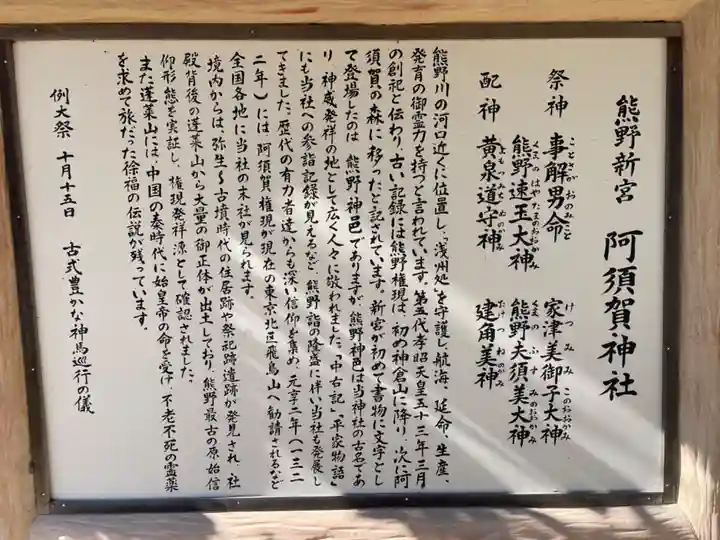 熊野新宮 阿須賀神社
祭神 事解男命 家津美御子大神
ことさかおのみこと けつみみこのおおかみ
熊野速玉大神 熊野夫須美大神
くまのはやたまのおおかみ くまのふすみのおおかみ
配神 黄泉道守神 建角美神
よもつみちもりのかみ たけつぬみのかみ
熊野川の河口近くに位置し、「浅洲処」を守護し、航海、延命、生産、
発育の御霊力を持つと言われています。第五代孝昭天皇五十三年三月
の創祀と伝わり、古い記録には熊野権現は、初め神倉山に降り、次に阿
須賀の森に移ったと記されています。新宮が初めて書物に文字とし
て登場したのは 熊野神邑でありますが、熊野神邑は当神社の古名であ
り、神威発祥の地として広く人々に敬われました。「中右記」、「平家物語」
にも当社への参詣記録が見えるなど 熊野詣の隆盛に伴い当社も発展し
てきました。歴代の有力者達からも深い信仰を集め、元亨二年（一三二
二年）には 阿須賀権現が現在の東京北区飛鳥山へ勧請されるなど
全国各地に当社の末社が見られます。
境内からは、弥生～古墳時代の住居跡や祭祀跡遺跡が発見され、社
殿背後の蓬莱山から大量の御正体が出土しており、熊野最古の原始信
仰形態を実証し、権現発祥源として確認されました。
また蓬莱山には、中国の秦時代に始皇帝の命を受け、不老不死の霊薬
を求めて旅だった徐福の伝説が残っています。
例大祭 十月十五日 古式豊かな神馬巡行の儀